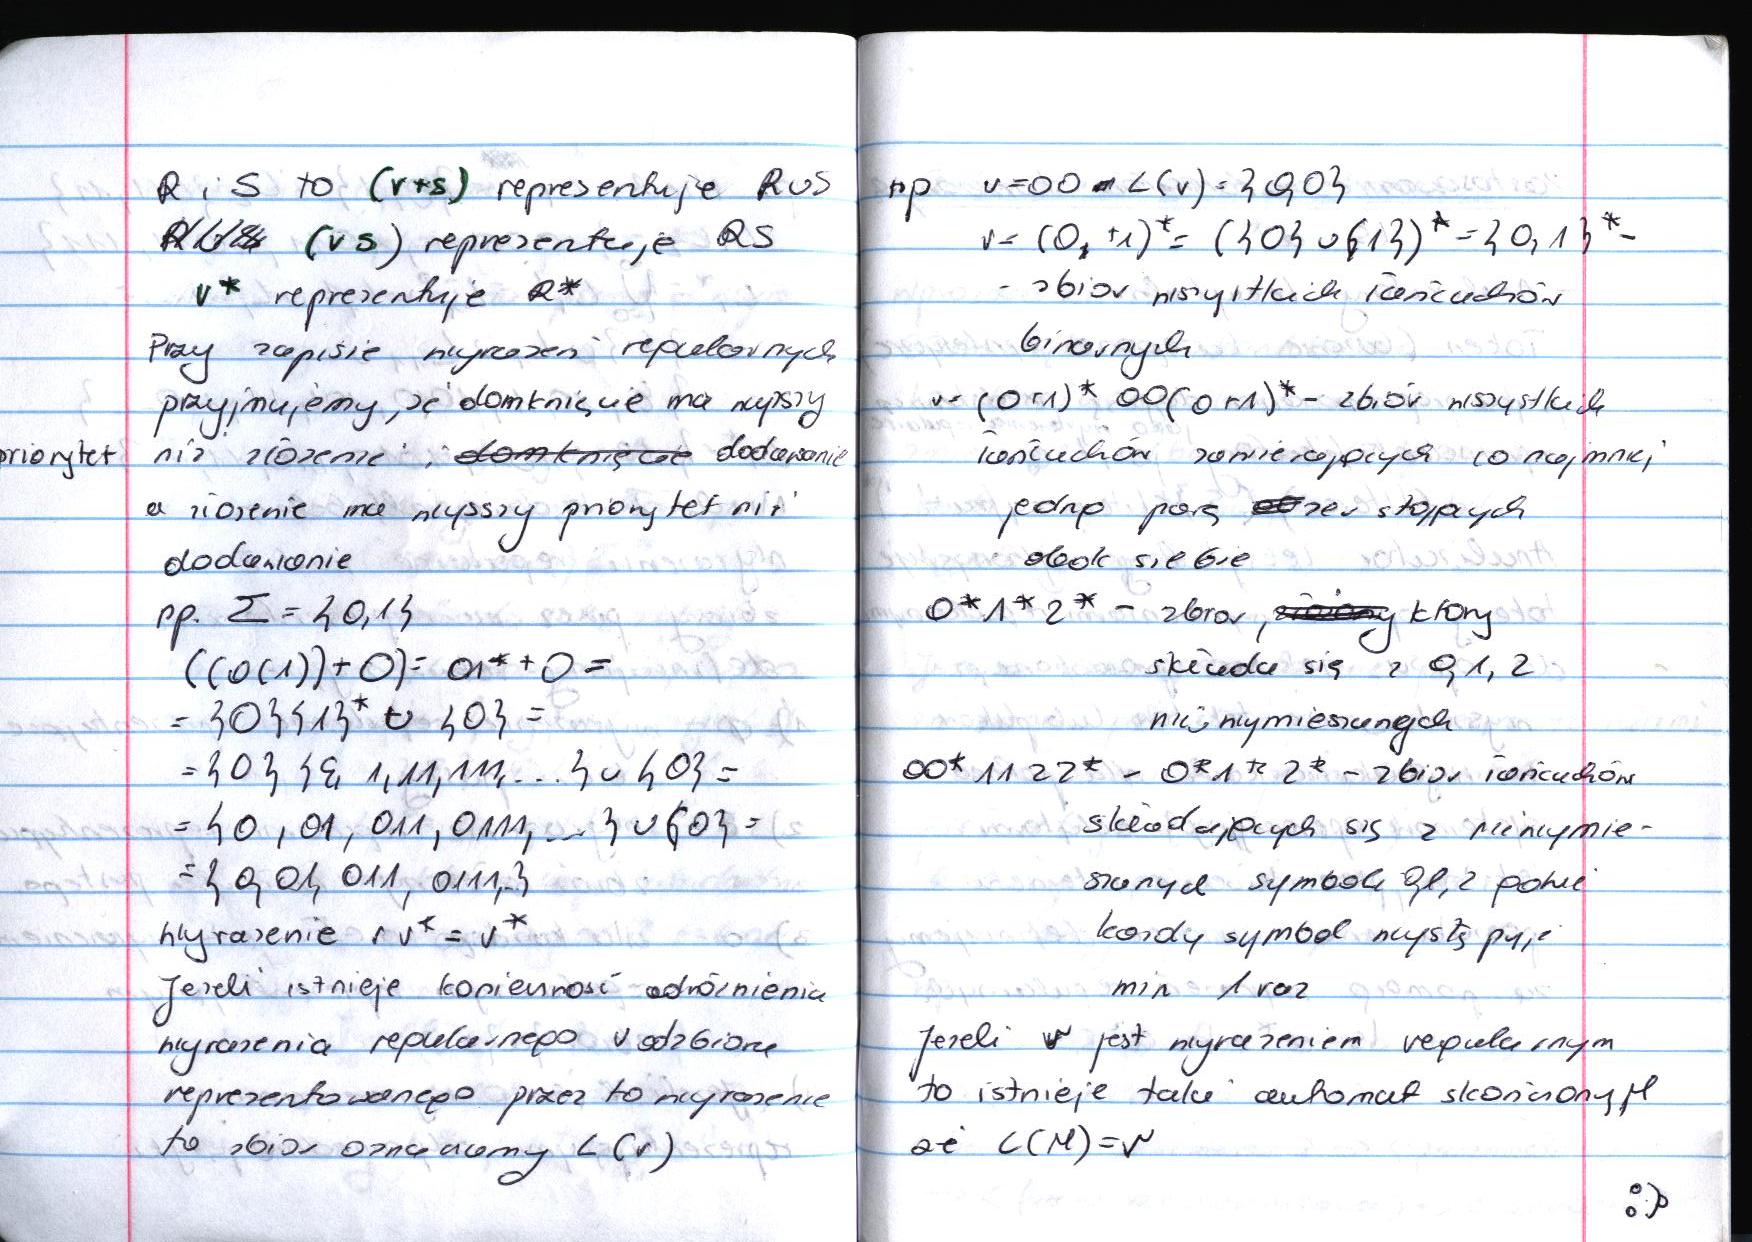 R i S to (r+s) reprezentuje R∪S
(rs) reprezentuje RS
r* reprezentuje R*
Przy zapisie wyrażeń regularnych
przyjmujemy, że domknięcie ma wyższy
priorytet niż złożenie i domknięcie dodawanie
a złożenie ma wyższy priorytet niż
dodawanie
np. Σ = {0,1}
((0(1))+0) = 01* + 0 =
= {0}{1}* ∪ {0} =
= {0} {ε, 1, 11, 111, ...} ∪ {0} =
= {0, 01, 011, 0111, ...} ∪ {0} =
= {0, 01, 011, 0111, ..}
Wyrażenie rr* = r*
Jeżeli istnieje konieczność odróżnienia
wyrażenia regularnego r od zbioru
reprezentowanego przez to wyrażenie
to zbiór oznaczamy L(r)
np r=00 L(r) = {0,0}
r = (0 +1)* = ({0} ∪ {1})* = {0,1}* -
- zbiór wszystkich łańcuchów
binarnych
r = (0+1)* 00(0+1)* - zbiór wszystkich
łańcuchów zawierających co najmniej
jedną parę zer stojących
obok siebie
0*1*2* - zbiór, który
składa się z 0,1,2
nie wymieszanych
00*1122* - 0*1*2* - zbiór łańcuchów
składających się z niewymie-
szanych symboli 0,1,2 gdzie
każdy symbol występuje
min 1 raz
Jeżeli r jest wyrażeniem regularnym
to istnieje taki automat skończony M
że L(M) = r